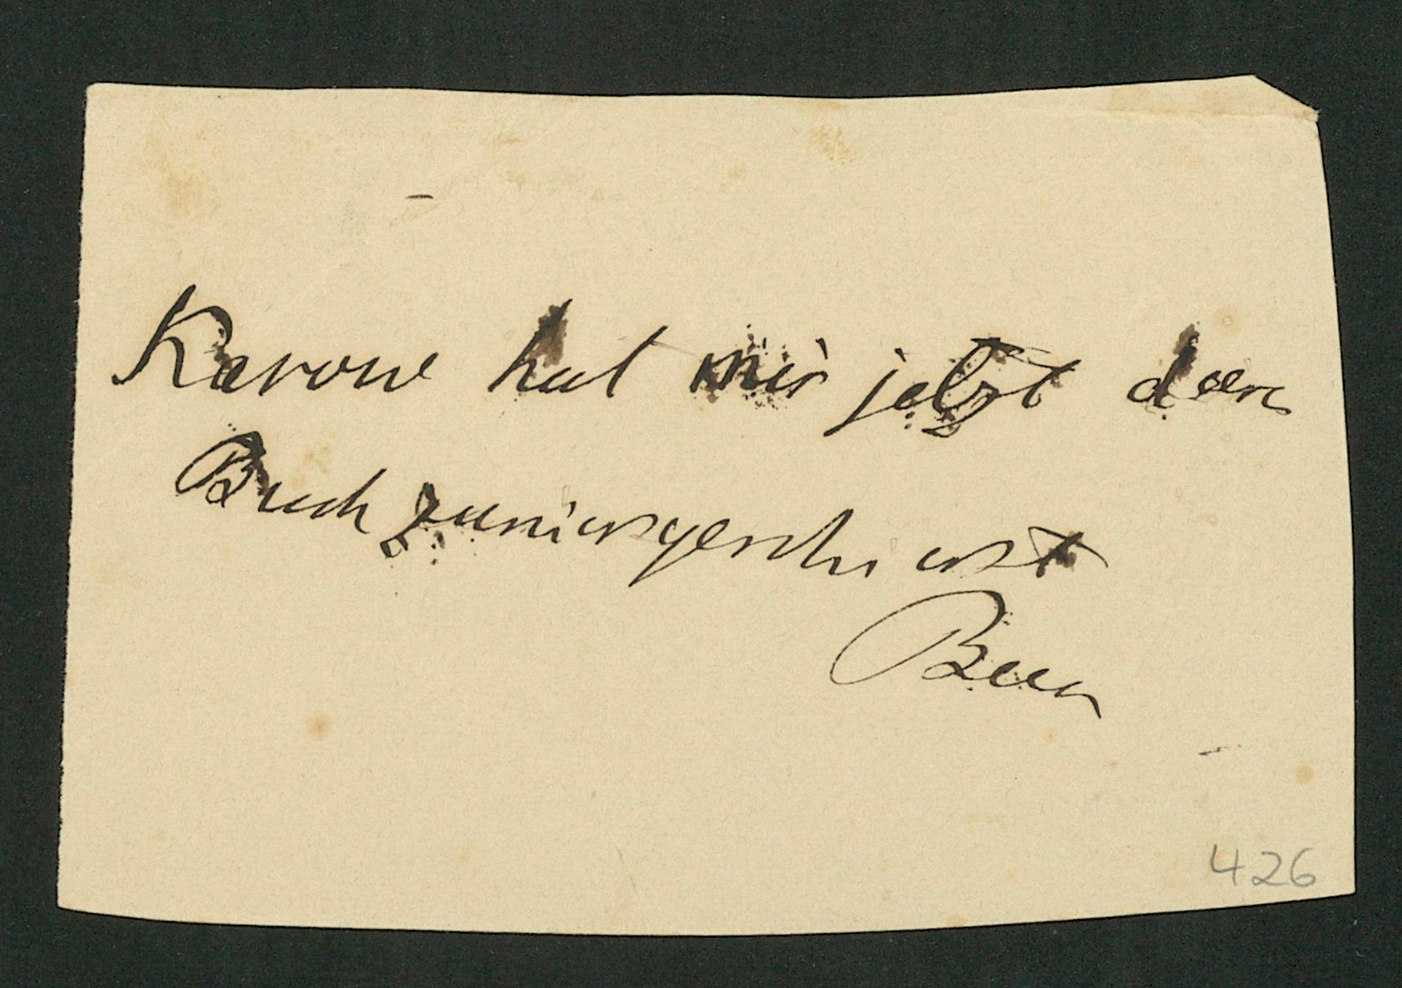 Karow hat mir jetzt das
Buch zurückgeschickt
426